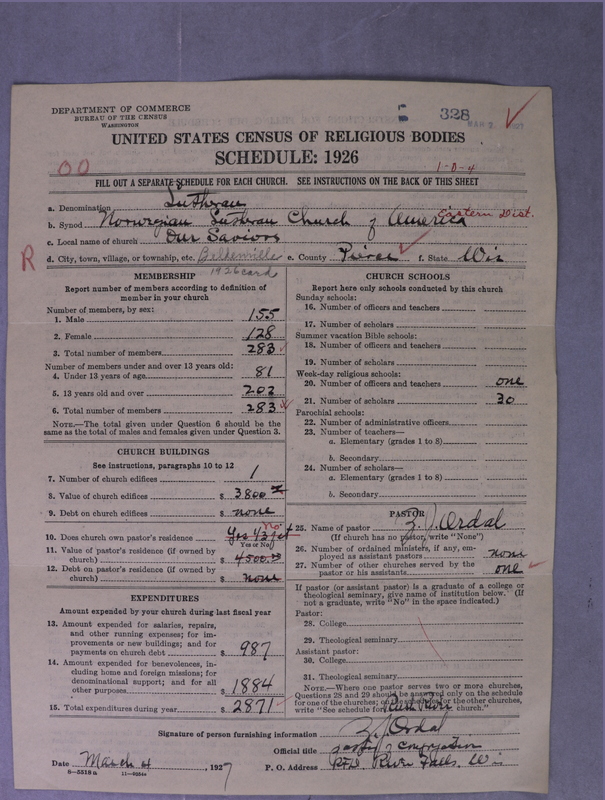 DEPARTMENT OF COMMERCE
BUREAU OF THE CENSUS
WASHINGTON
328
UNITED STATES CENSUS OF RELIGIOUS BODIES
SCHEDULE: 1926
OO
1-D-4
FILL OUT A SEPARATE SCHEDULE FOR EACH CHURCH. SEE INSTRUCTIONS ON THE BACK OF THIS SHEET
a. Denomination Lutheran
b. Synod Norwegian Lutheran Church of America Eastern Dist.
c. Local name of church Our Saviors
R
d. City, town, village, or township, etc. Beldenville e. County Pierce f. State Wis
1926 card
MEMBERSHIP
Report number of members according to definition of member in your church
Number of members, by sex:
1. Male 155
2. Female 128
3. Total number of members 283
Number of members under and over 13 years old:
4. Under 13 years of age 81
5. 13 years old and over 202
6. Total number of members 283
NOTE.—The total given under Question 6 should be the same as the total of males and females given under Question 3.
CHURCH BUILDINGS
See instructions, paragraphs 10 to 12
7. Number of church edifices 1
8. Value of church edifices $ 3800
9. Debt on church edifices $ none
10. Does church own pastor's residence Yes 1/3 int No
Yes or No
11. Value of pastor's residence (if owned by church) $ 4500.00
12. Debt on pastor's residence (if owned by church) $ none
EXPENDITURES
Amount expended by your church during last fiscal year
13. Amount expended for salaries, repairs, and other running expenses; for improvements or new buildings; and for payments on church debt $ 987
14. Amount expended for benevolences, including home and foreign missions; for denominational support; and for all other purposes $ 1884
15. Total expenditures during year $ 2871
CHURCH SCHOOLS
Report here only schools conducted by this church
Sunday schools:
16. Number of officers and teachers
17. Number of scholars
Summer vacation Bible schools:
18. Number of officers and teachers
19. Number of scholars
Week-day religious schools:
20. Number of officers and teachers one
21. Number of scholars 30
Parochial schools:
22. Number of administrative officers
23. Number of teachers—
a. Elementary (grades 1 to 8)
b. Secondary
24. Number of scholars—
a. Elementary (grades 1 to 8)
b. Secondary
PASTOR
25. Name of pastor Z. J. Ordal
(If church has no pastor, write "None")
26. Number of ordained ministers, if any, employed as assistant pastors none
27. Number of other churches served by the pastor or his assistants one
If pastor (or assistant pastor) is a graduate of a college or theological seminary, give name of institution below. (If not a graduate, write "No" in the space indicated.)
Pastor:
28. College
29. Theological seminary
Assistant pastor:
30. College
31. Theological seminary
NOTE.—Where one pastor serves two or more churches, Questions 28 and 29 should be answered only on the schedule for one of the churches; on the schedules for the other churches, write "See schedule for Rush River church."
Signature of person furnishing information Z. J. Ordal
Official title pastor of congregation
Date March 4, 1927 P. O. Address RFD River Falls, Wis
8—5518 a